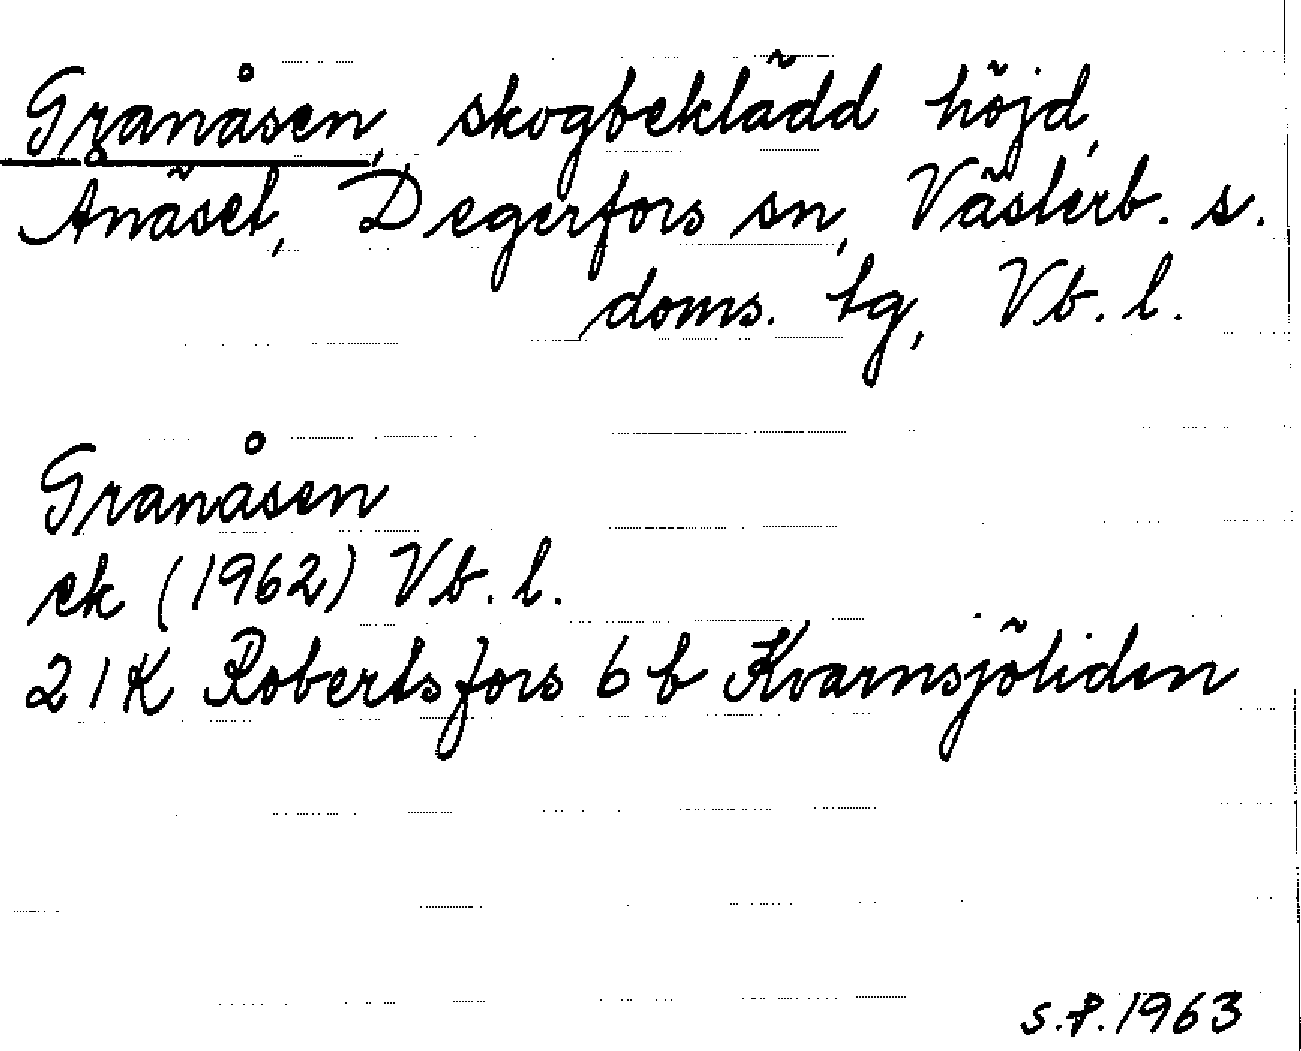 Granåsen, skogbeklädd höjd,
Anäset, Degerfors sn, Västerb. s.
doms. tg, Vb. l.
Granåsen
ek (1962) Vb. l.
21K Robertsfors 6b Kvarnsjöliden
S.P. 1963